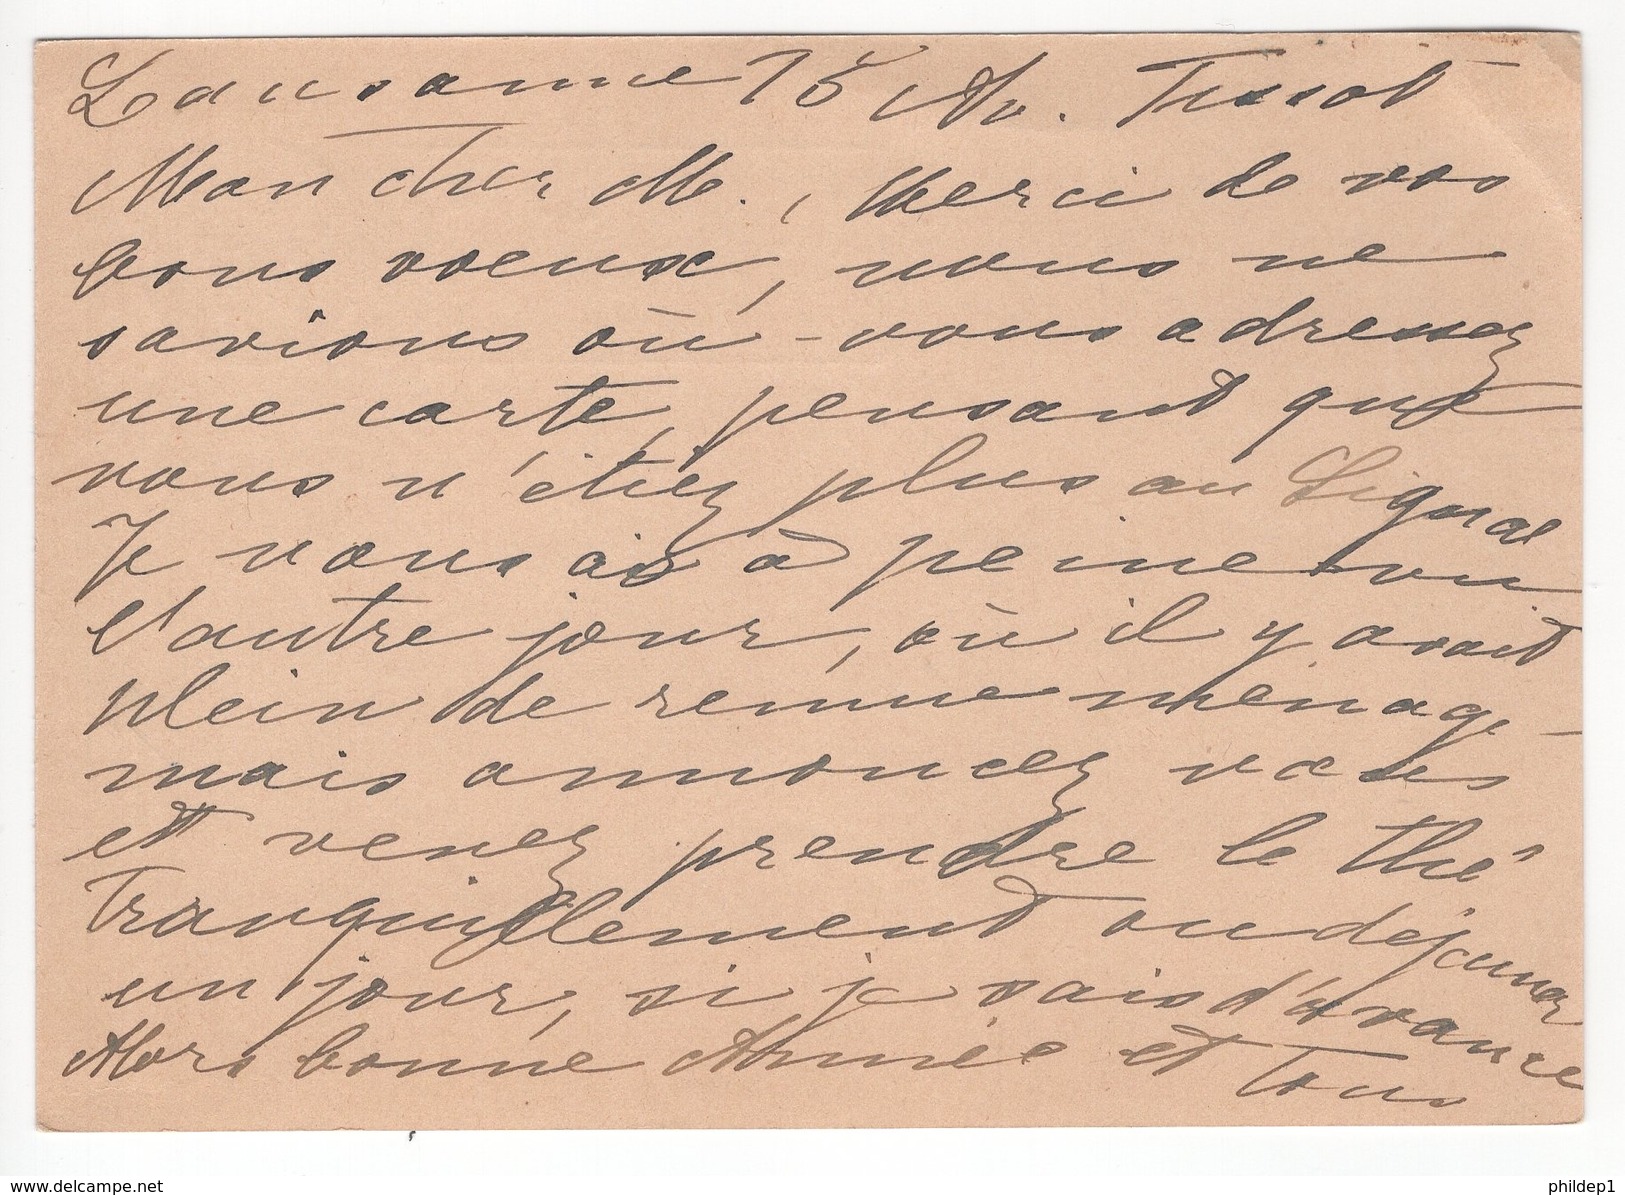 Lausanne 15 Av. Tissot
Mon cher M., Merci de vos
bons voeux, nous ne
savions où vous adressez
une carte, pensant que
vous n'étiez plus au Signal
Je vous ai à peine vu
l'autre jour, où il y avait
plein de remue ménage -
mais annoncez vous
et venez prendre le thé
tranquillement ou déjeuner
un jour, si je sais d'avance
Alors bonne Année et tous
www.delcampe.net
phildep1